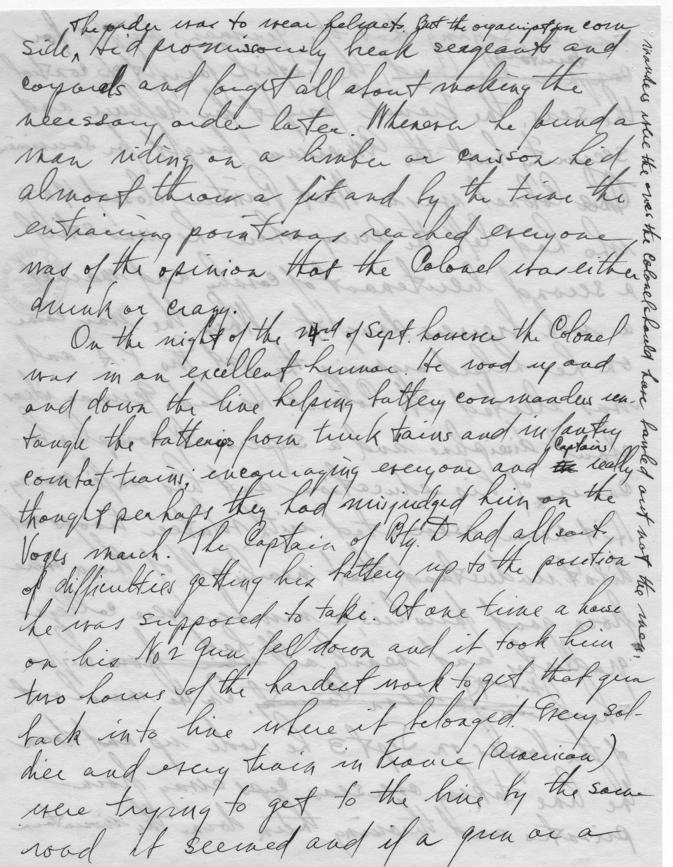 The order was to wear helmets. But the organization com
side, He'd promiscuously break seargeants and
corporals and forget all about making the
necessary order later. Whenever he found a
man riding on a limber or caisson he'd
almost throw a fit and by the time the
entraining point was reached everyone
was of the opinion that the Colonel was either
drunk or crazy.
On the night of the 4 of Sept. however the Colonel
was in an excellent humor. He rood up and
and down the line helping battery commanders un-
tangle the batteries from truck trains and infantry
combat trains, encouraging everyone and Captains really
thought perhaps they had misjudged him on the
Voges march. The Captain of Bty. D had all sorts
of difficulties getting his battery up to the position
he was supposed to take. At one time a horse
on his No 2 Gun fell down and it took him
two hours of the hardest work to get that gun
back into line where it belonged. Every sol-
dier and every train in France (American)
were trying to get to the line by the same
road it seemed and if a gun or a
manders were the ones the Colonel should have bawled out not the men.